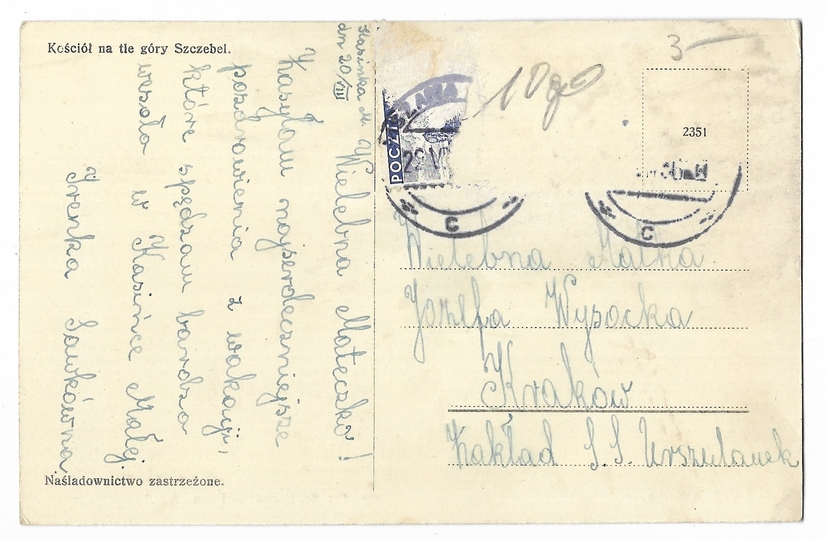 Kościół na tle góry Szczebel.
Kasinka M.
dn 20/VIII
Wielebna Mateczko!
Zasyłam najserdeczniejsze
pozdrowienia z wakacji,
które spędzam bardzo
wesoło w Kasince Małej.
Irenka Sawkówna
Naśladownictwo zastrzeżone.
POCZT
SZANA
C
10 gr
3-
2351
C
Wielebna Matka
Józefa Wysocka
Kraków
Zakład S.S. Urszulanek